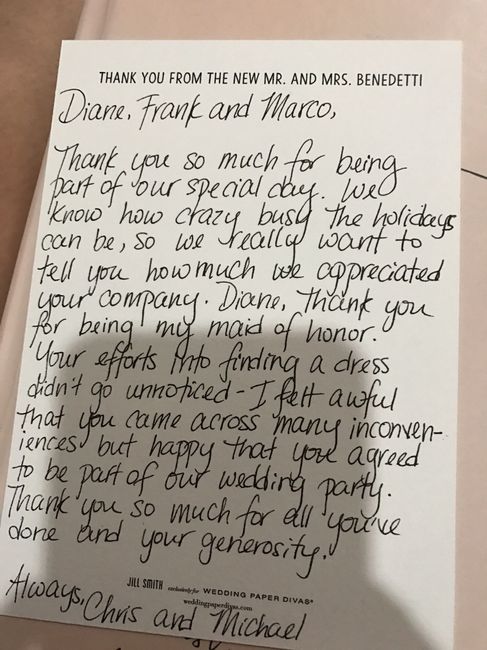 THANK YOU FROM THE NEW MR. AND MRS. BENEDETTI
Diane, Frank and Marco,
Thank you so much for being
part of our special day. We
know how crazy busy the holidays
can be, so we really want to
tell you how much we appreciated
your company. Diane, thank you
for being my maid of honor.
Your efforts into finding a dress
didn't go unnoticed - I felt awful
that you came across many inconven-
iences but happy that you agreed
to be part of our wedding party.
Thank you so much for all you've
done and your generosity.
JILL SMITH exclusively for WEDDING PAPER DIVAS®
weddingpaperdivas.com
Always,
Chris and Michael